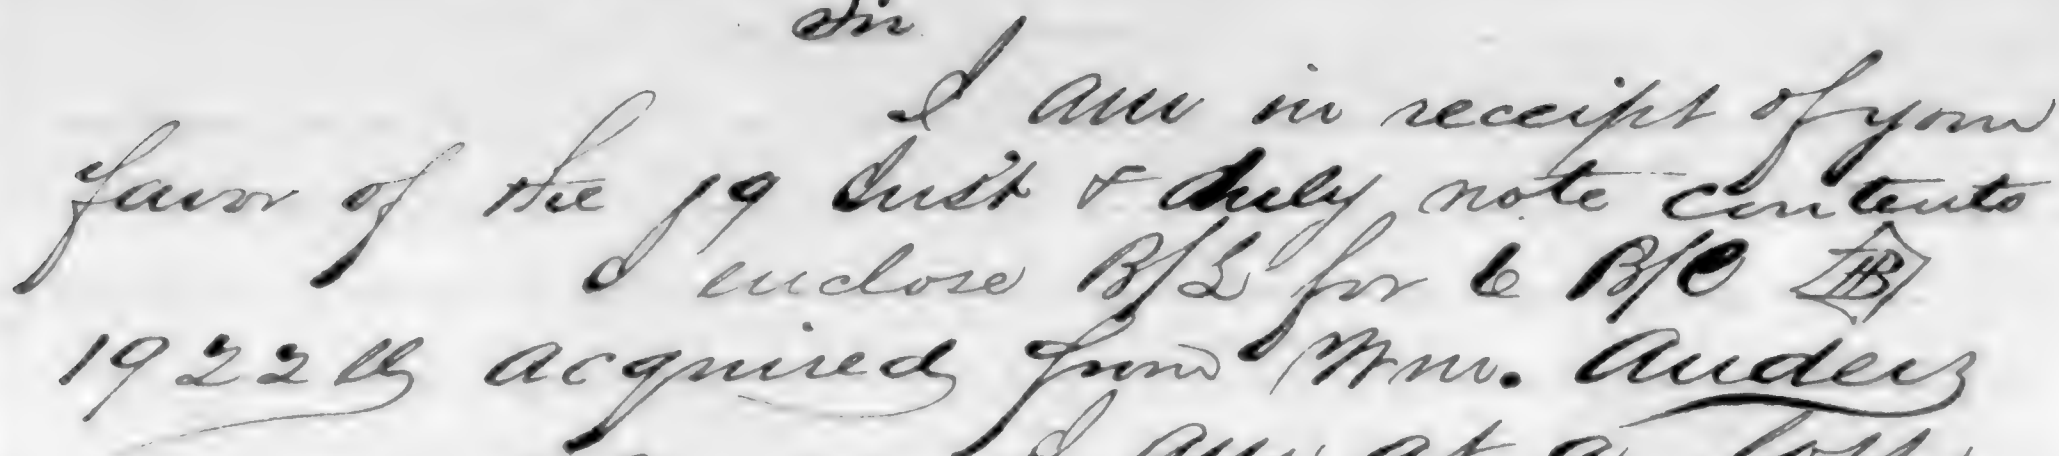 Sir
I am in receipt of your
favor of the 19 Inst & duly note contents
I enclose B/L for 6 B/C HB
1922 lb acquired from Wm. Anders
I am at a loss